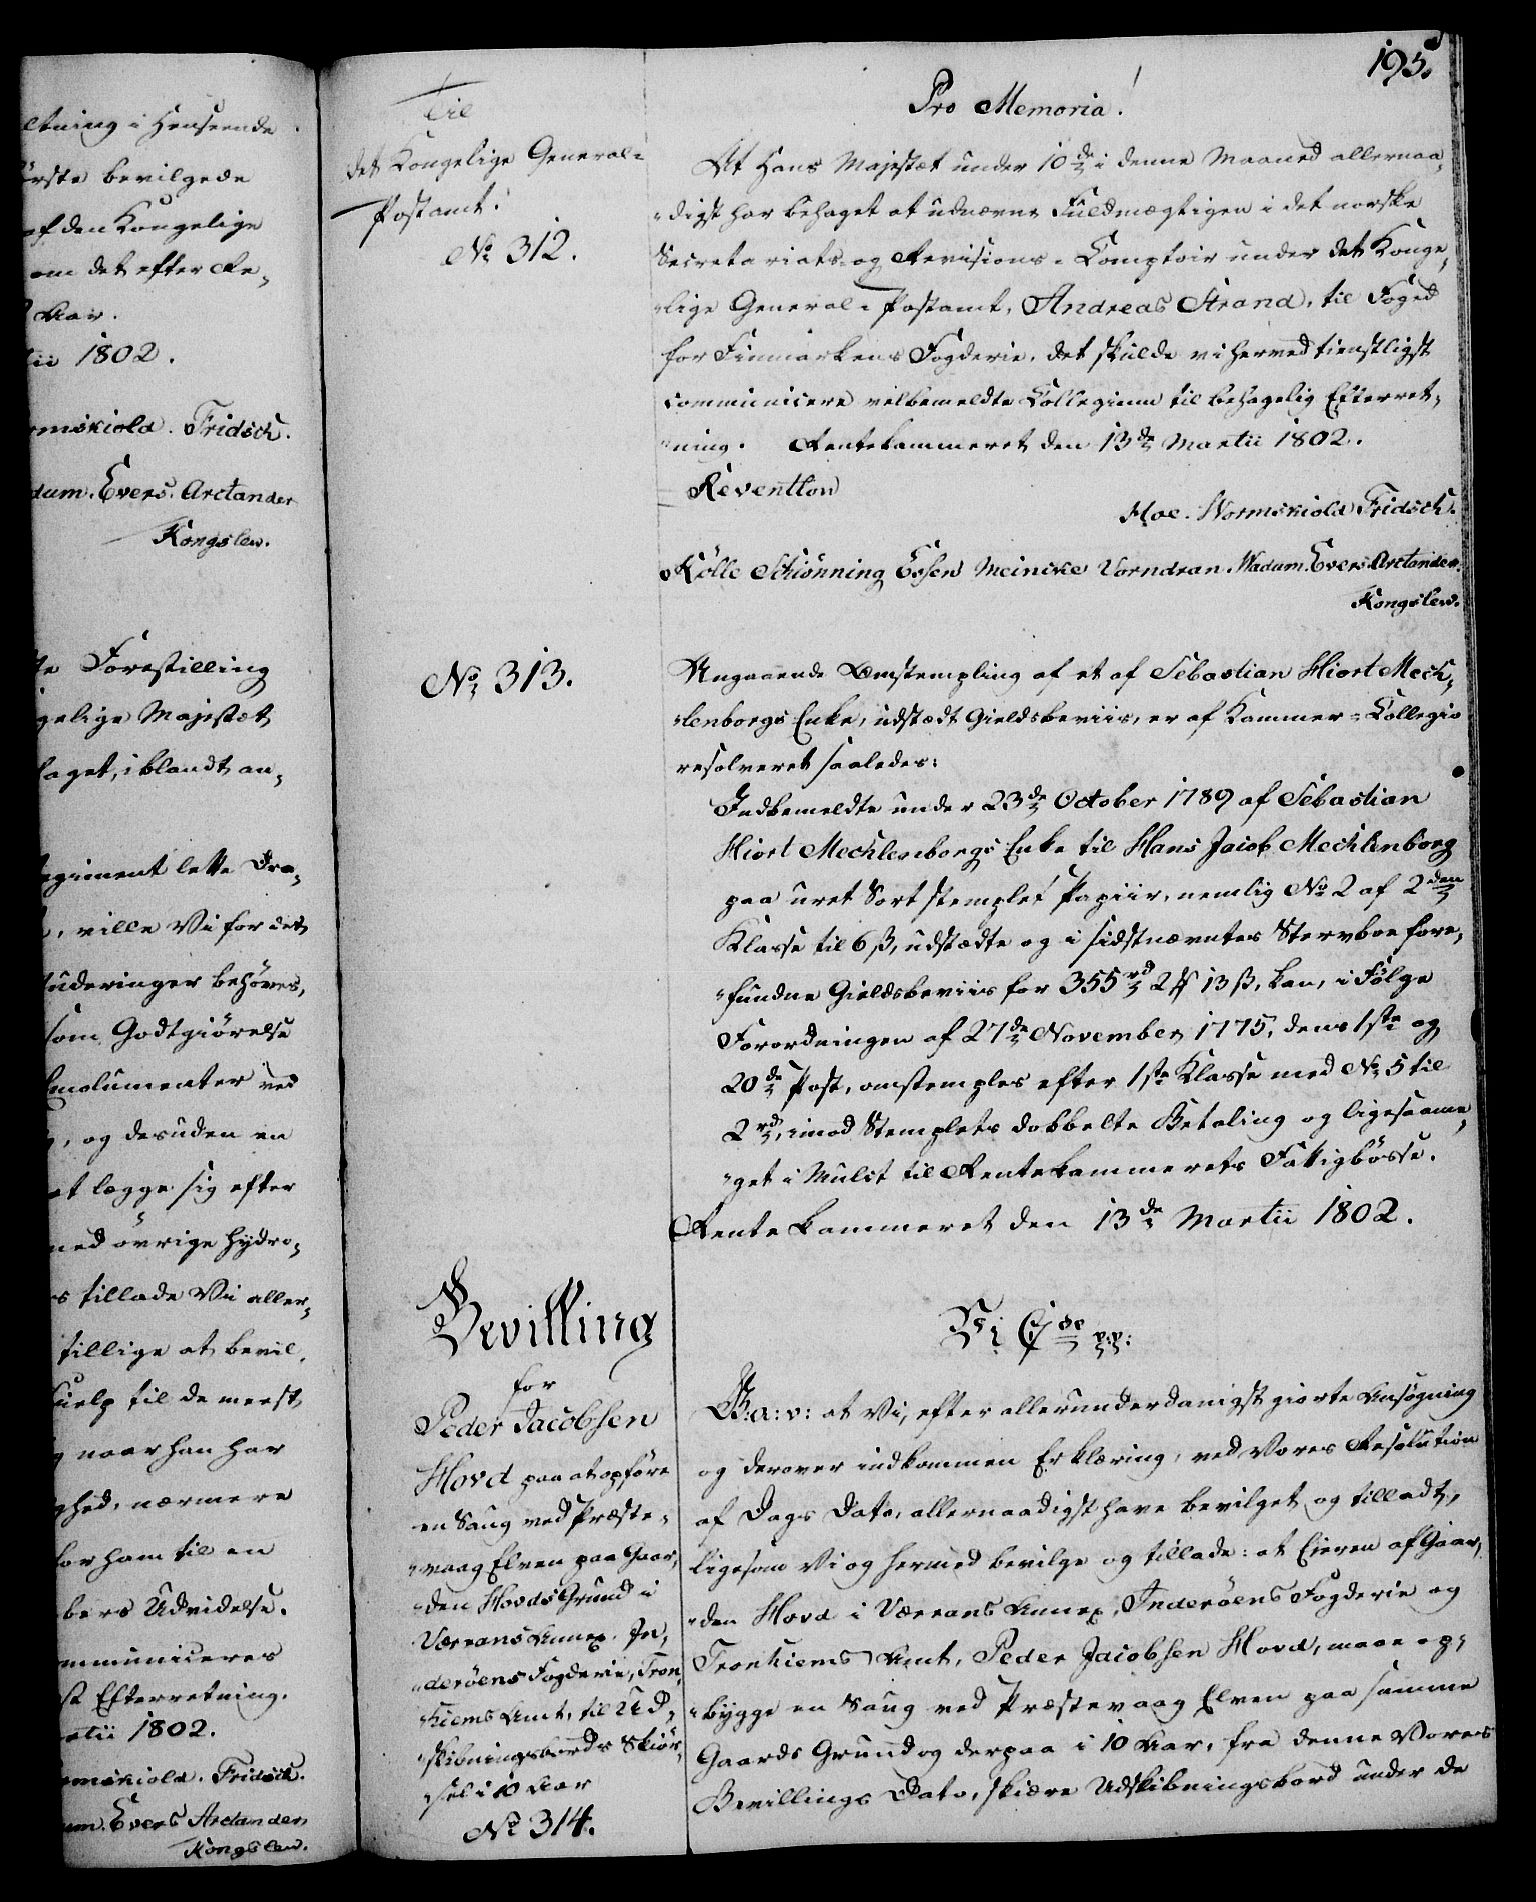 ltning i Henseende
örste bevilgede
af den Kongelige
om det efter Re„
Aar.
tii 1802.
rmskiold. Fridsch.
dum. Evers. Arctander
Kongslew.
te Forestilling
gelige Majestet
haget, iblandt an„
egiment lette Dra„
, ville Vi for det
uderinger behøves,
som Godtgiörelse
Emolumenter ved
, og desuden en
at legge sig efter
med övrige hydro„
s tillade Vi aller„
tillige at bevil„
hielp til de meest
naar han har
ghed, nærmere
for ham til en
bers Udvidelse.
mmuniceres
st Efterretning.
artii 1802.
rmskiold. Fridsch.
um. Evers Arctander
Kongslew.
195.
Til
det Kongelige General=
Postamt!
No 312.
Pro Memoria!
At Hans Majestet under 10de i denne Maaned allernaa„
„digst har behaget at udnævne Fuldmægtigen i det norske
Secretariats- og Revisions-Comptoir under det Konge„
„lige General-Postamt, Andreas Strand, til Foged
for Finmarkens Fogderie, det skulde vi herved tienstligst
communicere velbemeldte Collegium til behagelig Efterret„
„ning. Rentekammeret den 13de Martii 1802.
Reventlow
Moe. Wormskiold Fridsch.
Kölle Schiønning Essen Meincke Vorndran. Wadum. Evers Arctander.
Kongslew.
No 313.
Angaaende Omstempling af et af Sebastian Hiort Mech„
„lenborgs Enke, udstædt Gieldsbeviis, er af Kammer=Collegio
resolveret saaledes:
Indbemeldte under 23de October 1789 af Sebastian
Hiort Mechlenborgs Enke til Hans Jacob Mechlenborg
paa uret Sort stemplet Papiir, nemlig No 2 af 2den
Klasse til 6 ß, udstædte og i sidstnævntes Stervboe fore„
„fundne Gieldsbeviis for 355 rd 2 ℔ 13 ß, kan, i Fölge
Forordningen af 27de November 1775, dens 1ste og
20de Post, omstemples efter 1ste Klasse med No 5 til
2 rd, imod Stemplets dobbelte Betaling og ligesaame„
„get i Mulct til Rentekammerets Fattigbösse.
Rentekammeret den 13de Martii 1802.
Bevilling
for
Peder Jacobsen
Hovd paa at opföre
en Saug ved Præste„
„vaag Elven paa Gaar„
„den Hovds Grund i
Værrans Annex, In„
„deröens Fogderie, Tron„
„hiems Amt, til Ud„
„skibningsbords Skiør„
„sel i 10 Aar
No 314.
Vi C: 7de p:p:
G: a: v: at Vi, efter allerunderdanigst giorte Ansøgning
og derover indkommen Erklæring, ved Vores Resolution
af Dags Dato, allernaadigst have bevilget og tilladt,
ligesom Vi og hermed bevilge og tillade: at Eieren af Gaar„
„den Hovd i Værrans Annex, Inderöens Fogderie og
Tronhiems Amt, Peder Jacobsen Hovd, maae op„
„bygge en Saug ved Præstevaag Elven paa samme
Gaards Grund og derpaa i 10 Aar, fra denne Vores
Bevillings Dato, skiære Udskibningsbord under de